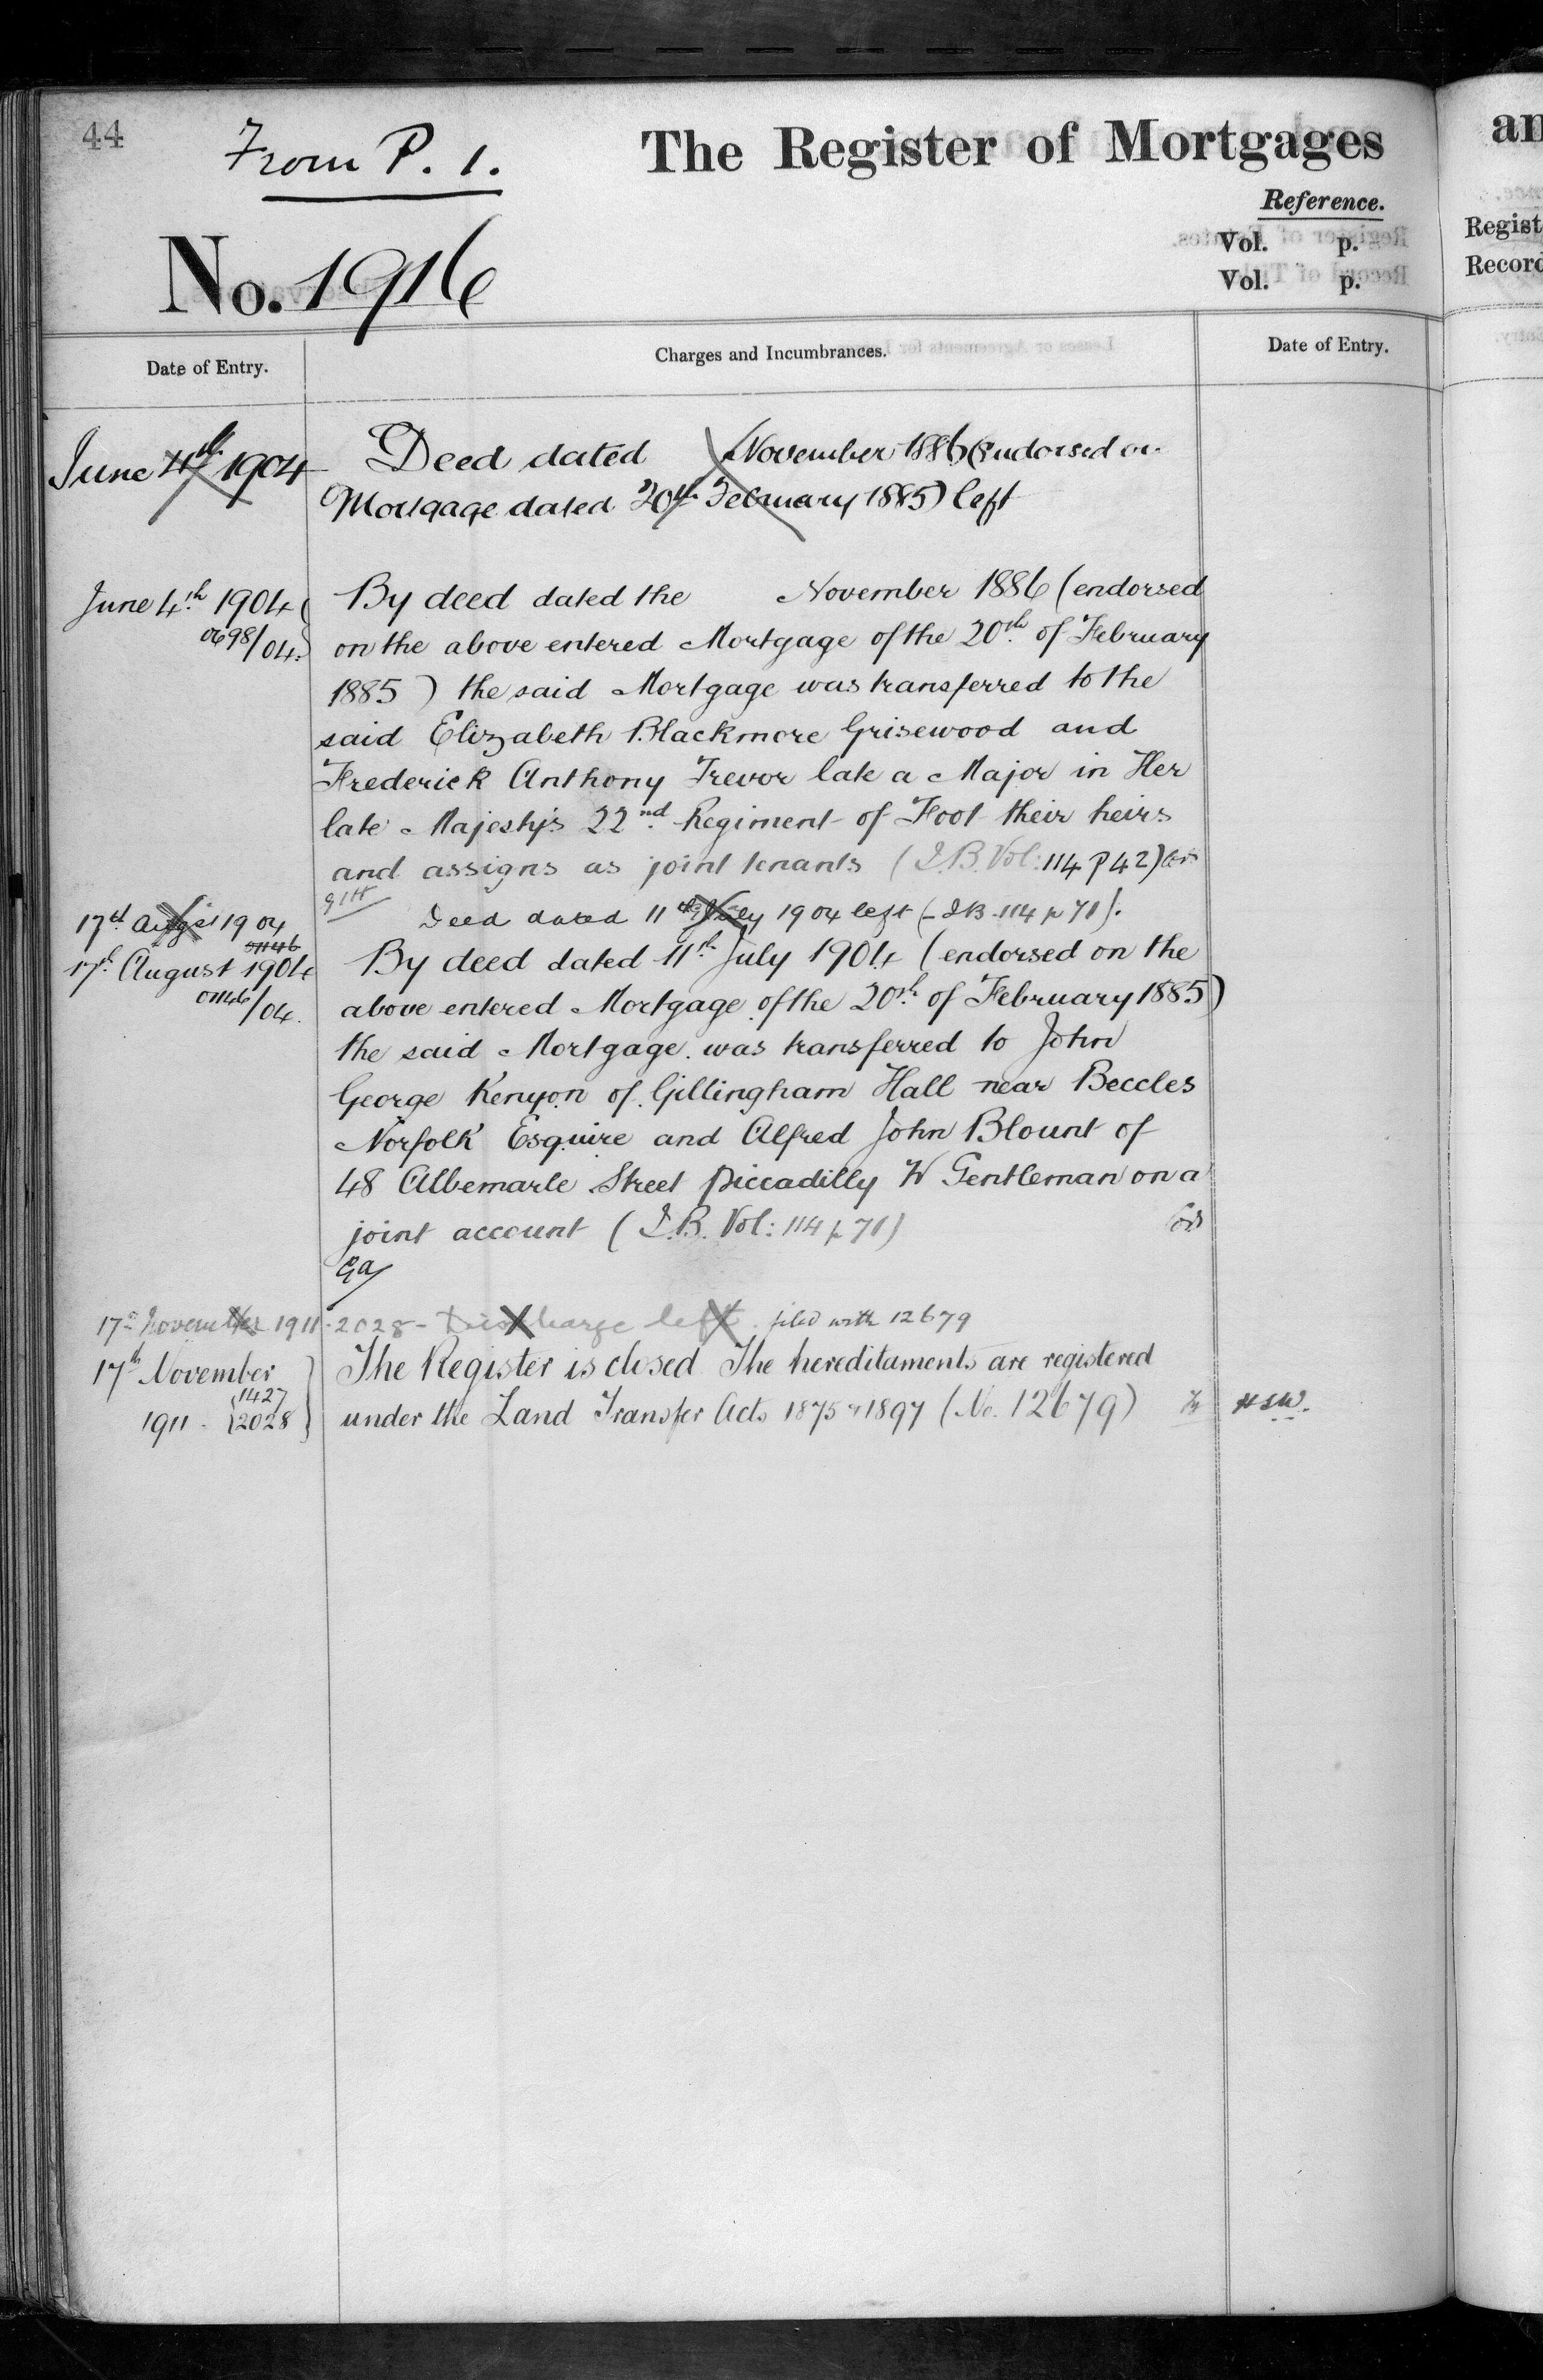 44
From P. 1.
The Register of Mortgages
an
Reference.
Vol. p.
Vol. p.
Regist
Record
No. 1916
Date of Entry.
Charges and Incumbrances.
Date of Entry.
June 4th 1904
Deed dated November 1886 (endorsed on
Mortgage dated 20th February 1885) left
June 4th 1904
0698/04.
By deed dated the November 1886 (endorsed
on the above entered Mortgage of the 20th of February
1885) the said Mortgage was transferred to the
said Elizabeth Blackmore Grisewood and
Frederick Anthony Trevor late a Major in Her
late Majesty's 22nd Regiment of Foot their heirs
and assigns as joint tenants (I.B. Vol: 114 p 42)
17th Augst 1904
01146
Deed dated 11th July 1904 left (I B 114 p 71).
17th August 1904
01146/04.
By deed dated 11th July 1904 (endorsed on the
above entered Mortgage of the 20th of February 1885)
the said Mortgage was transferred to John
George Kenyon of Gillingham Hall near Beccles
Norfolk Esquire and Alfred John Blount of
48 Albemarle Street Piccadilly W Gentleman on a
joint account (I.B. Vol: 114 p 71)
17th November 1911. 2028 - Discharge left. filed with 12679
17th November
1911. 1427
2028
The Register is closed The hereditaments are registered
under the Land Transfer Acts 1875 & 1897 (No. 12679) HSW.